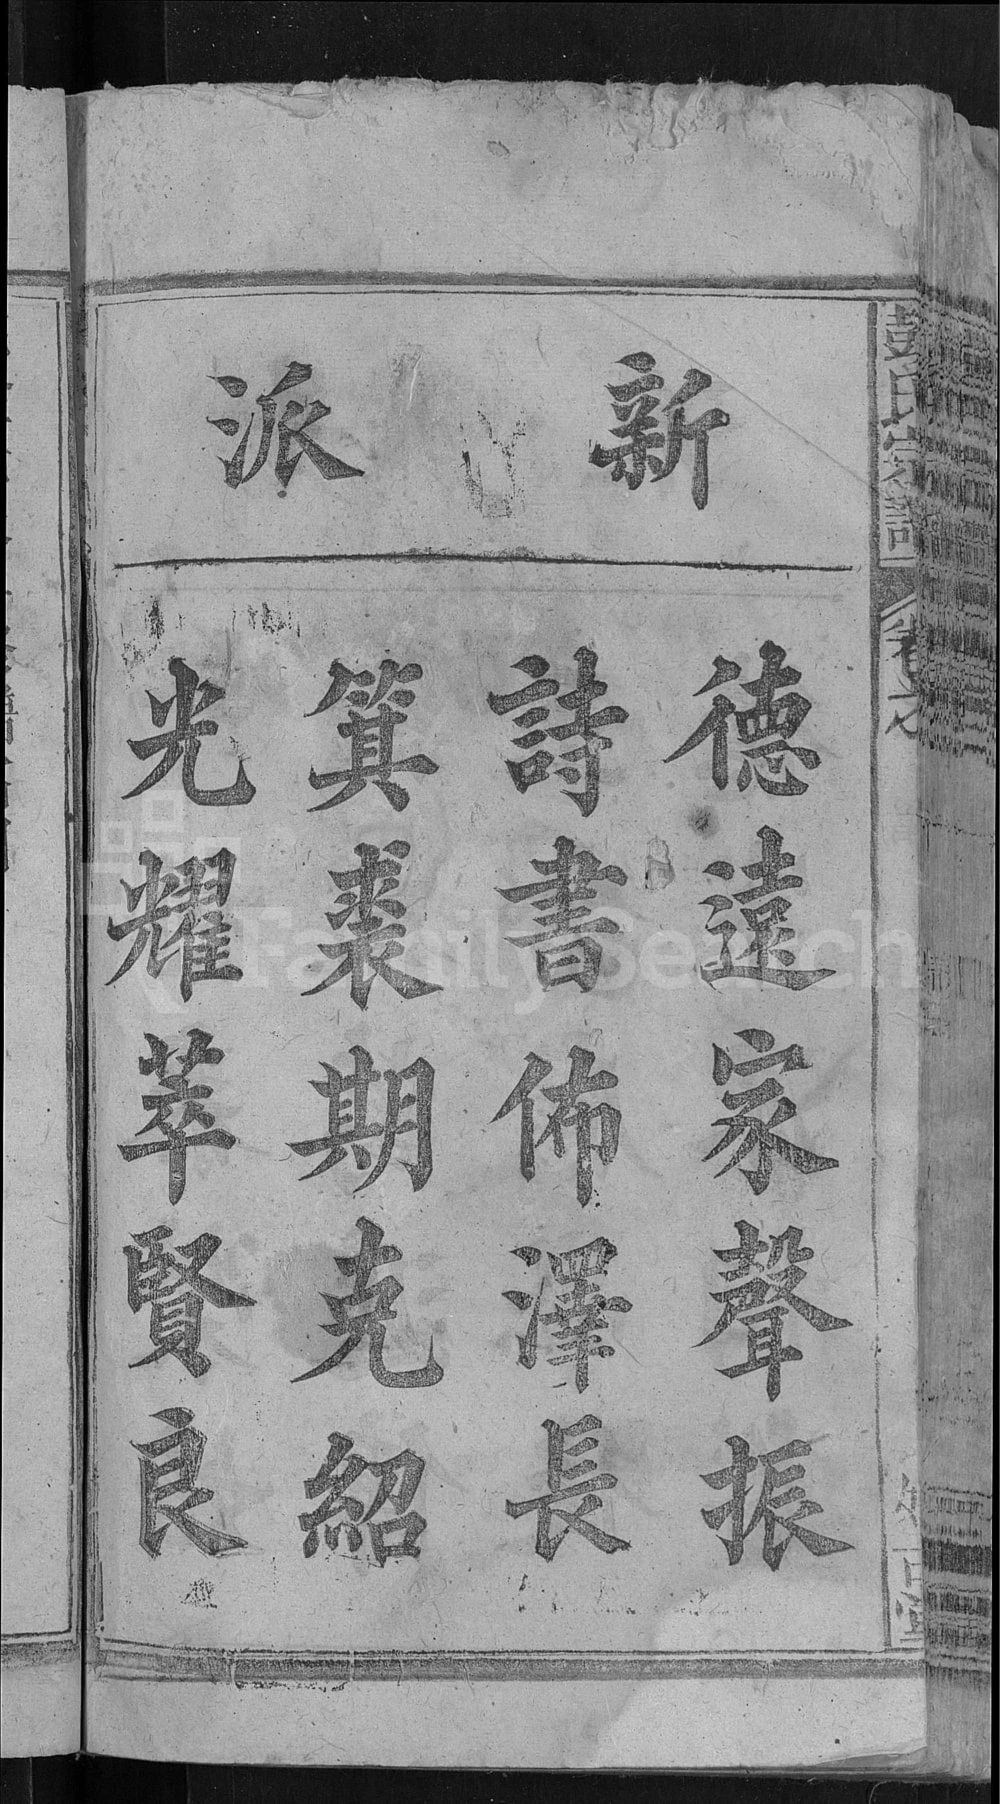 新派
德遠家聲振
詩書佈澤長
箕裘期克紹
光耀萃賢良
彭氏宗譜
FamilySearch